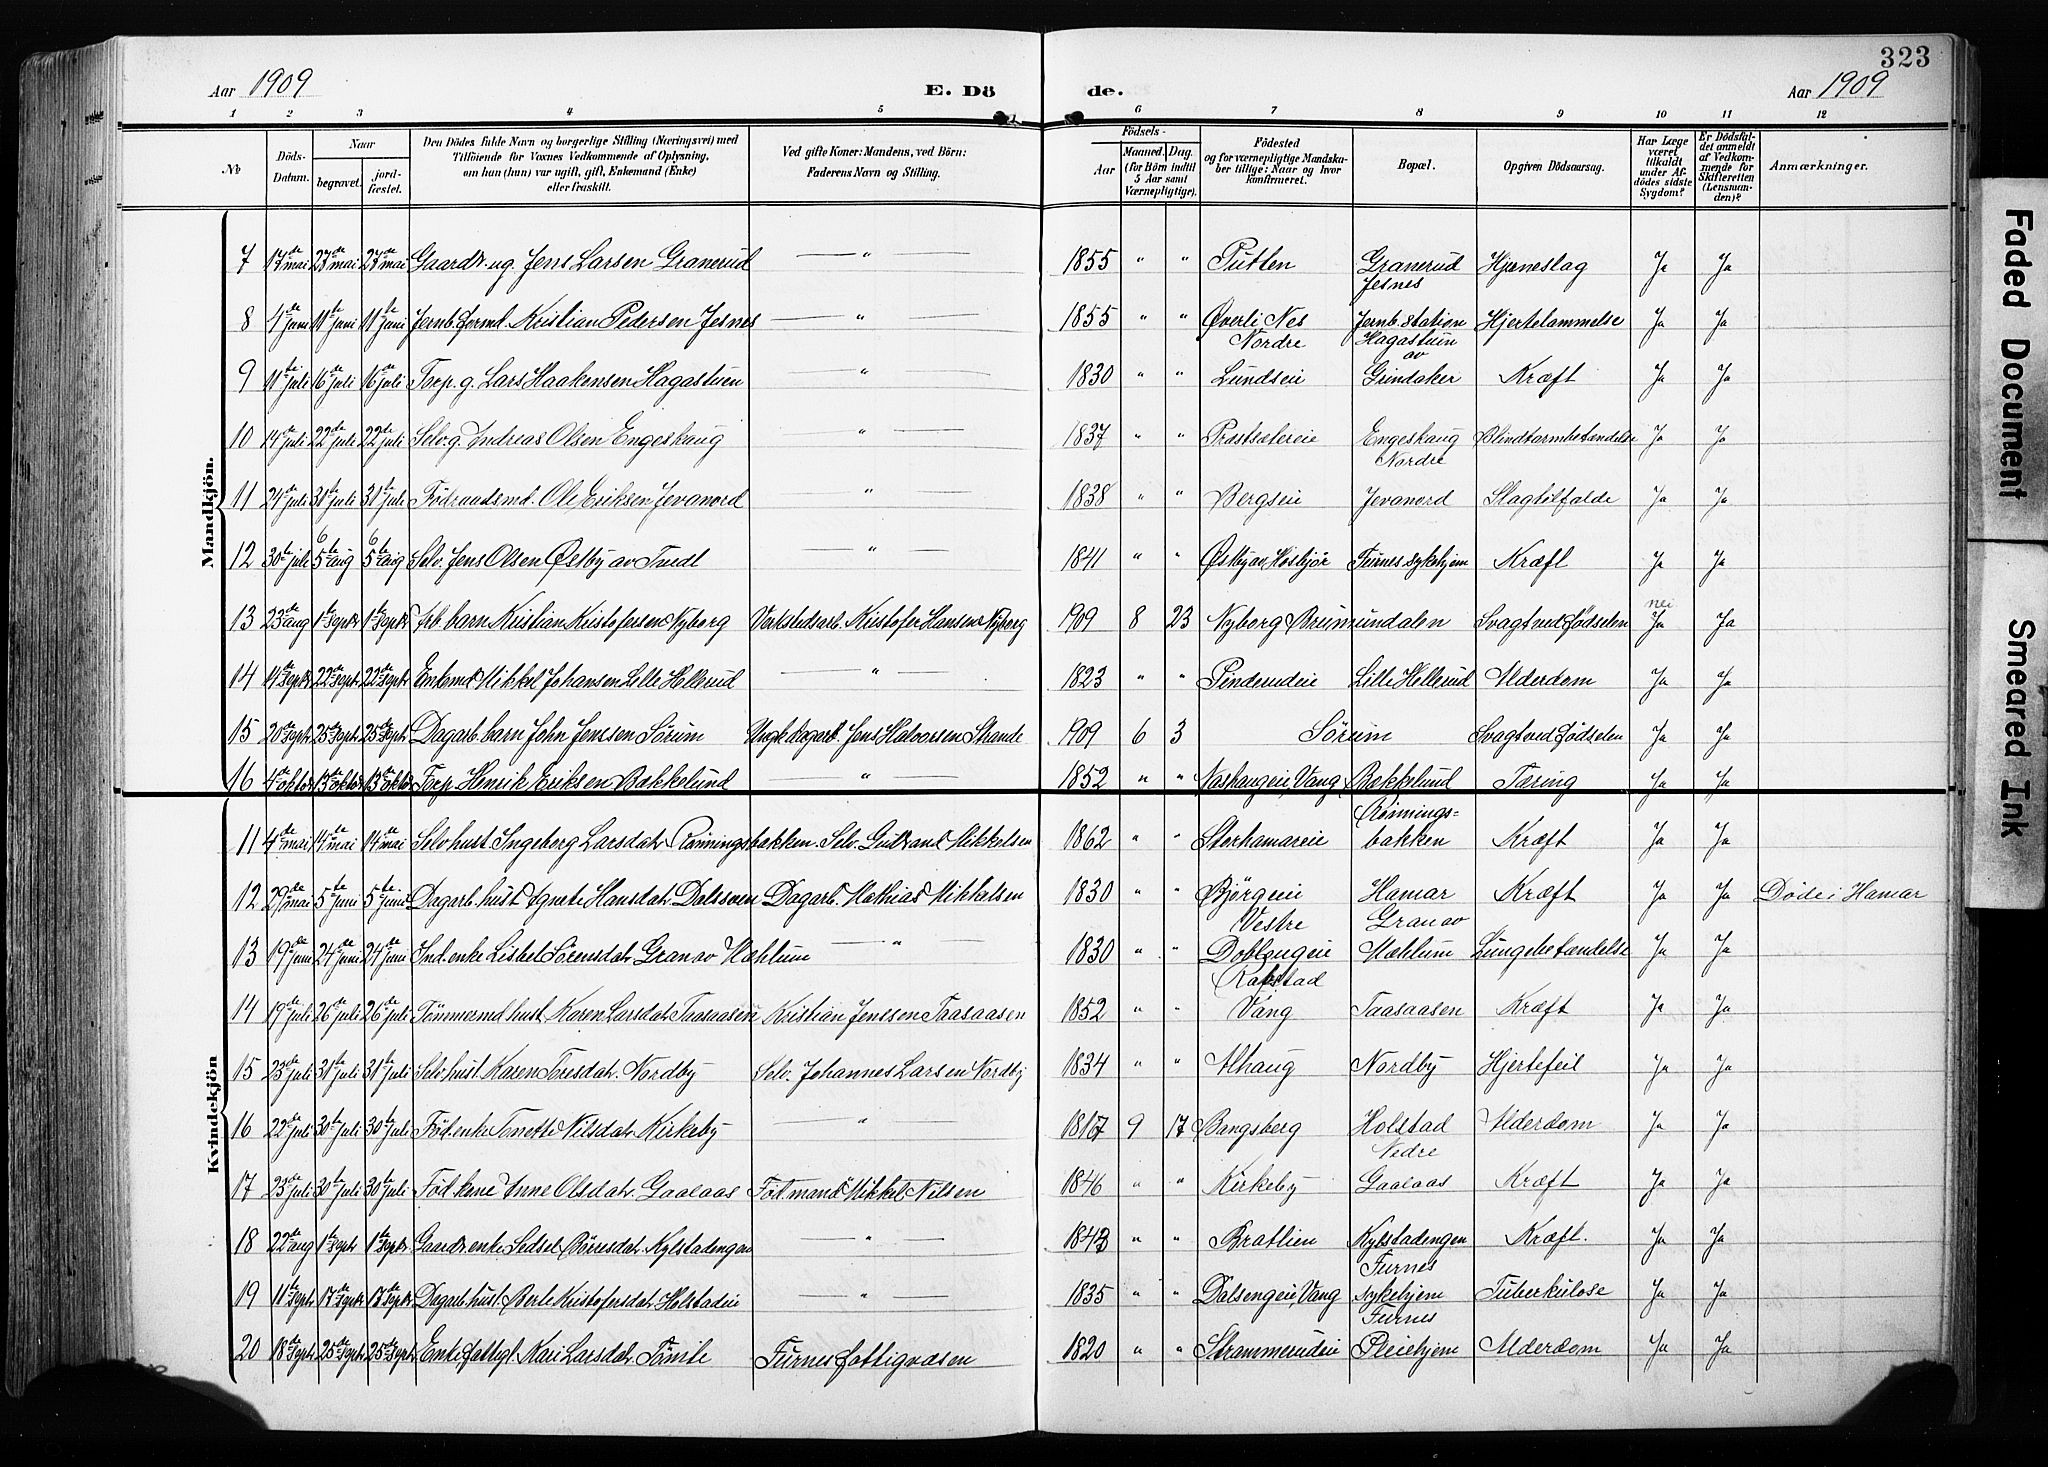 323
Aar 1909 E. Dö de. Aar 1909
1 2 3 4 5 6 7 8 9 10 11 12
No Döds-Datum. Naar begravet. jord-fæstet. Den Dödes fulde Navn og borgerlige Stilling (Næringsvei) med Tilföiende for Voxnes Vedkommende af Oplysning, om han (hun) var ugift, gift, Enkemand (Enke) eller fraskilt. Ved gifte Koner: Mandens, ved Börn: Faderens Navn og Stilling. Födsels- Aar Maaned. Dag. (for Börn indtil 5 Aar samt Værnepligtige). Födested og for værnepligtige Mandskaber tillige: Naar og hvor konfirmeret. Bopæl. Opgiven Dödsaarsag. Har Læge været tilkaldt under Afdödes sidste Sygdom? Er Dödsfaldet anmeldt af Vedkommende for Skifteretten (Lensmanden)? Anmærkninger.
Mandkjön.
7 17de mai 27de mai 27de mai Gaardr. ug. Jens Larsen Granerud — " — 1855 " " Putten Granerud Hjerneslag Ja Ja
8 4de juni 11te juni 11te juni Jernb. formd. Kristian Pedersen Jesnes — " — 1855 " " Øverli Nes Jesnes Jernb. station Hjertelammelse Ja Ja
9 11te juli 16de juli 16de juli Torp. g. Lars Haakensen Hagastuen — " — 1830 " " Nordre Lundseie Hagastuen av Grindaker Kræft Ja Ja
10 14de juli 22de juli 22de juli Selv. g. Andreas Olsen Engeshaug — " — 1837 " " Præstsætereie Engeshaug Blindtarmbetændelse Ja Ja
11 24de juli 31te juli 31te juli Födraadsmd. Ole Eriksen Jevanord — " — 1838 " " Bergseie Nordre Jevanord Slagtilfælde Ja Ja
12 30te juli 6 5te aug 6 5te aug Selv. Jens Olsen Østby av Tredt — " — 1841 " " Østby av Hosbjör Furnes sykehjem Kræft Ja Ja
13 23de aug 1te Septr 1te Septr Arb. barn Kristian Kristofersen Nyborg Verkstedsarb. Kristofer Hansen Nyborg 1909 8 23 Nyborg Brumundalen Svagt ved Fødselen nei Ja Ja
14 14de Septr 22de Septr 22de Septr Enkemd. Mikkel Johansen Lille Hellerud — " — 1823 " " Penderudeie Lille Hellerud Alderdom Ja Ja
15 20de Septr 25de Septr 25de Septr Dagarb. barn John Jensen Sörum Ungk. dagarb. Jens Halvorsen Strande 1909 6 3 Sörum Svagt ved Fødselen Ja Ja
16 4de oktor 13de oktor 13de oktor Torp. Henrik Eriksen Bækkelund — " — 1852 " " Nashaugeie, Vang Bækkelund Tæring Ja Ja
Kvindekjön
11 4de mai 14de mai 14de mai Selv. hust. Ingeborg Larsdatr Rönningsbakken Selv. Gudbrand Mikkelsen 1862 " " Storhamareie Rönningsbakken Kræft Ja Ja
12 29de mai 5te juni 5te juni Dagarb. hust. Agnete Hansdatr Dalsveen Dagarb. Mathias Mikkelsen 1830 " " Björgeie Hamar Kræft Ja Ja Døde i Hamar
13 19de juni 24de juni 24de juni Ind. enke Lisbet Sörensdatr Gran av Mæhlum — " — 1830 " " Vestre Doblougeie Gran av Mæhlum Lungebetændelse Ja Ja
14 19de juli 26de juli 26de juli Tömmermd. hust. Karen Larsdatr Taasaasen Kristian Jenssen Taasaasen 1852 " " Rakstad Vang Taasaasen Kræft Ja Ja
15 23de juli 31te juli 31te juli Selv. hust. Karen Toresdatr. Nordby Selv. Johannes Larsen Nordby 1834 " " Alhaug Nordby Hjertefeil Ja Ja
16 22de juli 30te juli 30te juli Föd. enke Tonette Nilsdatr Kirkeby — " — 1817 9 17 Bangsberg Holstad Alderdom Ja Ja
17 23de juli 30te juli 30te juli Föd. kone Anne Olsdatr Gaalaas Föd. mand Mikkel Nilsen 1846 " " Kirkeby Nedre Gaalaas Kræft Ja Ja
18 22de aug 1te Septr 1te Septr Gaardr. enke Sedsel Börresdatr Kylstadengen — " — 1843 " " Bratlien Kylstadengen Kræft. Ja Ja
19 11te Septr 17de Septr 17de Septr Dagarb. hust. Berte Kristofersdatr Holstadeie — " — 1835 " " Dalsengeie, Vang Furnes sykehjem Tuberkulose Ja Ja
20 18de Septr 25de Septr 25de Septr Enke fattigl. Kari Larsdatr Tömte Furnes fattigvæsen 1820 " " Strammerudeie Furnes Pleiehjem Alderdom Ja Ja
Faded Document
Smeared Ink